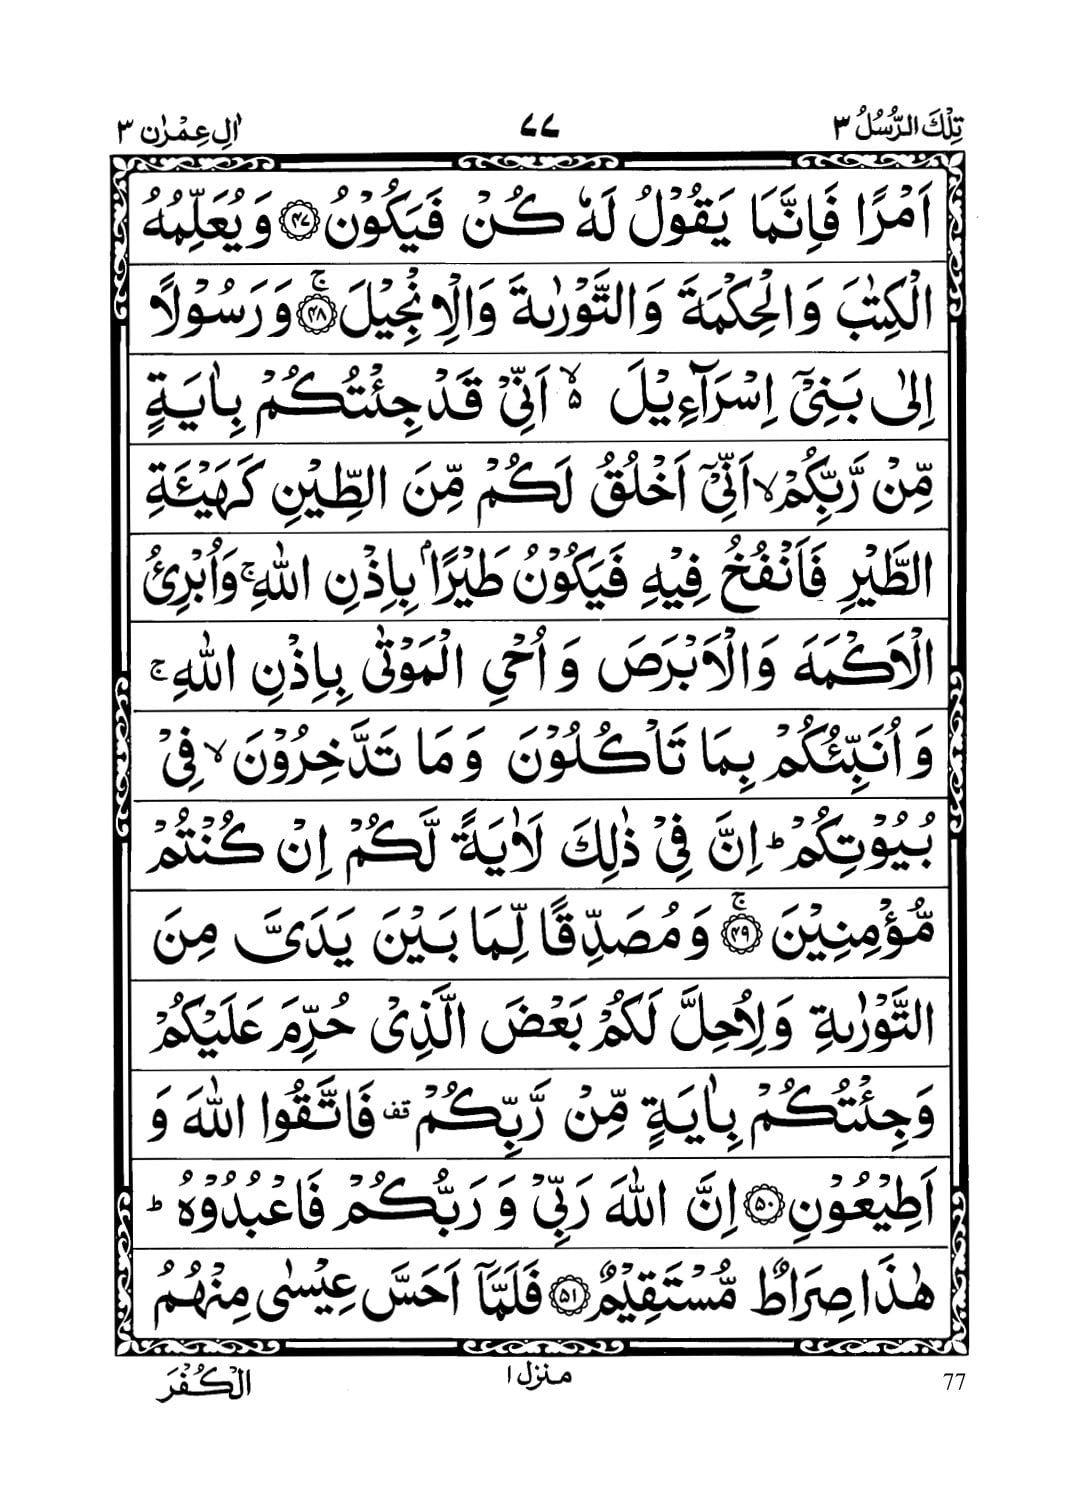 تِلْكَ الرُّسُلُ ٣ ٧٧ اٰلِ عِمْرٰن ٣
اَمْرًا فَاِنَّمَا يَقُوْلُ لَهٗ كُنْ فَيَكُوْنُ ﴿۴۷﴾ وَ يُعَلِّمُهُ
الْكِتٰبَ وَ الْحِكْمَةَ وَ التَّوْرٰىةَ وَ الْاِنْجِيْلَ ۚ﴿۴۸﴾ وَ رَسُوْلًا
اِلٰى بَنِىْٓ اِسْرَآءِيْلَ ۙ۬ اَنِّىْ قَدْ جِئْتُكُمْ بِاٰيَةٍ
مِّنْ رَّبِّكُمْ ۙ اَنِّىْٓ اَخْلُقُ لَكُمْ مِّنَ الطِّيْنِ كَهَيْئَةِ
الطَّيْرِ فَاَنْفُخُ فِيْهِ فَيَكُوْنُ طَيْرًاۢ بِاِذْنِ اللّٰهِ ۚ وَ اُبْرِئُ
الْاَكْمَهَ وَ الْاَبْرَصَ وَ اُحْىِ الْمَوْتٰى بِاِذْنِ اللّٰهِ ۚ
وَ اُنَبِّئُكُمْ بِمَا تَاْكُلُوْنَ وَ مَا تَدَّخِرُوْنَ ۙ فِىْ
بُيُوْتِكُمْ ؕ اِنَّ فِىْ ذٰلِكَ لَاٰيَةً لَّكُمْ اِنْ كُنْتُمْ
مُّؤْمِنِيْنَ ۚ﴿۴۹﴾ وَ مُصَدِّقًا لِّمَا بَيْنَ يَدَىَّ مِنَ
التَّوْرٰىةِ وَ لِاُحِلَّ لَكُمْ بَعْضَ الَّذِىْ حُرِّمَ عَلَيْكُمْ
وَ جِئْتُكُمْ بِاٰيَةٍ مِّنْ رَّبِّكُمْ قف فَاتَّقُوا اللّٰهَ وَ
اَطِيْعُوْنِ ﴿۵۰﴾ اِنَّ اللّٰهَ رَبِّىْ وَ رَبُّكُمْ فَاعْبُدُوْهُ ؕ
هٰذَا صِرَاطٌ مُّسْتَقِيْمٌ ﴿۵۱﴾ فَلَمَّآ اَحَسَّ عِيْسٰى مِنْهُمُ
77 منزل ١ الْكُفْرَ